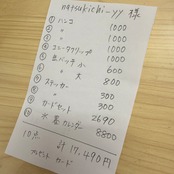 natsukichi-yy 様
① ハンコ 1000
② 〃 1000
③ 〃 1000
④ コルククリップ 1000
⑤ 缶バッチ 小 600
⑥ 〃 大 800
⑦ ステッカー 300
⑧ 〃 300
⑨ カードセット 2690
⑩ 水墓カレンダー 8800
10点 計17,490円
プレゼント カード